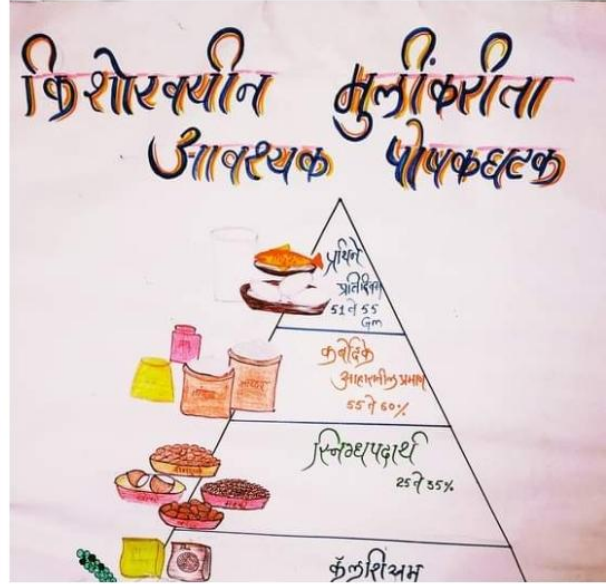 किशोरवयीन मुलींकरीता
आवश्यक पोषकघटक
प्रथिने
प्रतिदिवस
51 ते 55
Gm
कर्बोदके
आहारातील प्रमाण
55 ते 60%
स्निग्धपदार्थ
25 ते 35%
कॅल्शियम